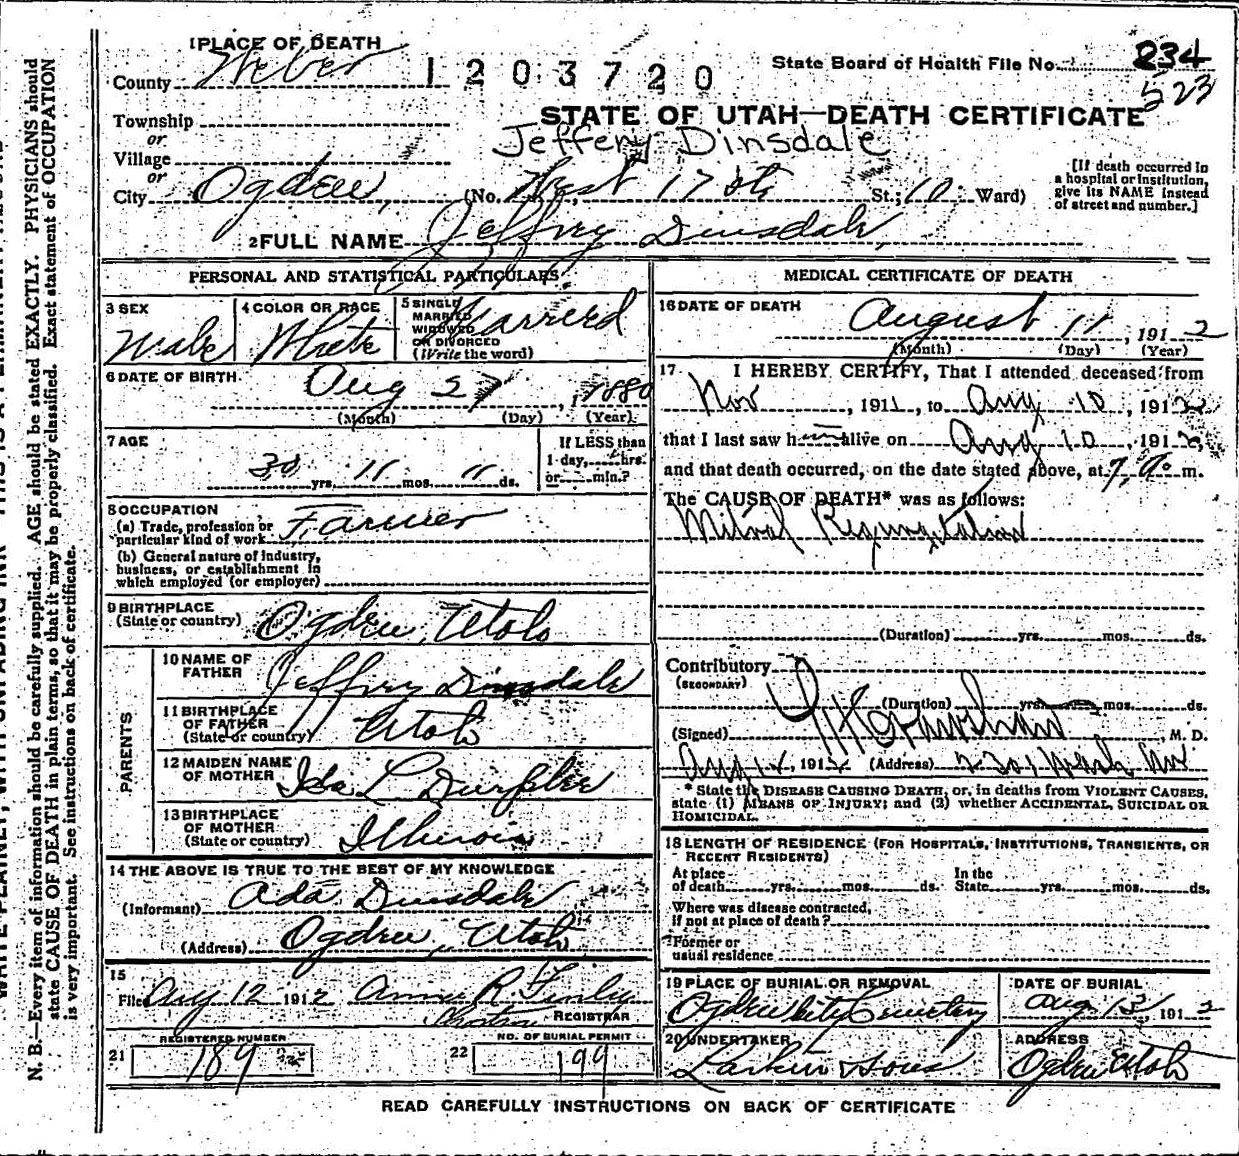 1 PLACE OF DEATH
County Weber
1203720
State Board of Health File No. 234
523
STATE OF UTAH—DEATH CERTIFICATE
Jeffery Dinsdale
Township
or
Village
or
City Ogden, (No. West 17th St.; 10 Ward)
[If death occurred in
a hospital or institution,
give its NAME instead
of street and number.]
2 FULL NAME Jeffrey Dinsdale,
PERSONAL AND STATISTICAL PARTICULARS
3 SEX
Male
4 COLOR OR RACE
White
5 SINGLE
MARRIED
WIDOWED
OR DIVORCED
(Write the word)
Married
6 DATE OF BIRTH
Aug 27, 1880
(Month) (Day) (Year)
7 AGE
30 yrs. 11 mos. 11 ds.
If LESS than
1 day, hrs.
or min.?
8 OCCUPATION
(a) Trade, profession or
particular kind of work Farmer
(b) General nature of industry,
business, or establishment in
which employed (or employer)
9 BIRTHPLACE
(State or country) Ogden, Utah
PARENTS
10 NAME OF
FATHER Jeffrey Dinsdale
11 BIRTHPLACE
OF FATHER
(State or country) Utah
12 MAIDEN NAME
OF MOTHER Ida L
13 BIRTHPLACE
OF MOTHER
(State or country) Illinois
14 THE ABOVE IS TRUE TO THE BEST OF MY KNOWLEDGE
(Informant) Ada Dinsdale
(Address) Ogden, Utah
15
Filed Aug 12 1912 Anna R Finley
REGISTRAR
21 REGISTERED NUMBER
189
22 NO. OF BURIAL PERMIT
199
MEDICAL CERTIFICATE OF DEATH
16 DATE OF DEATH
August 11, 1912
(Month) (Day) (Year)
17 I HEREBY CERTIFY, That I attended deceased from
Nov, 1911, to Aug 10, 1912
that I last saw h alive on Aug 10, 1912,
and that death occurred, on the date stated above, at 7 a. m.
The CAUSE OF DEATH* was as follows:
Mitral Regurgitation
(Duration) yrs. mos. ds.
Contributory
(SECONDARY)
(Duration) yrs. mos. ds.
(Signed) M. D.
Aug 12, 1912 (Address) Wash Av
* State the DISEASE CAUSING DEATH, or, in deaths from VIOLENT CAUSES,
state (1) MEANS OF INJURY; and (2) whether ACCIDENTAL, SUICIDAL OR
HOMICIDAL.
18 LENGTH OF RESIDENCE (FOR HOSPITALS, INSTITUTIONS, TRANSIENTS, OR
RECENT RESIDENTS)
At place
of death yrs. mos. ds.
In the
State yrs. mos. ds.
Where was disease contracted,
if not at place of death?
Former or
usual residence
19 PLACE OF BURIAL OR REMOVAL
Ogden City Cemetery
DATE OF BURIAL
Aug 13, 1912
20 UNDERTAKER
Larkin & Sons
ADDRESS
Ogden Utah
READ CAREFULLY INSTRUCTIONS ON BACK OF CERTIFICATE
N. B.—Every item of information should be carefully supplied. AGE should be stated EXACTLY. PHYSICIANS should
state CAUSE OF DEATH in plain terms, so that it may be properly classified. Exact statement of OCCUPATION
is very important. See instructions on back of certificate.